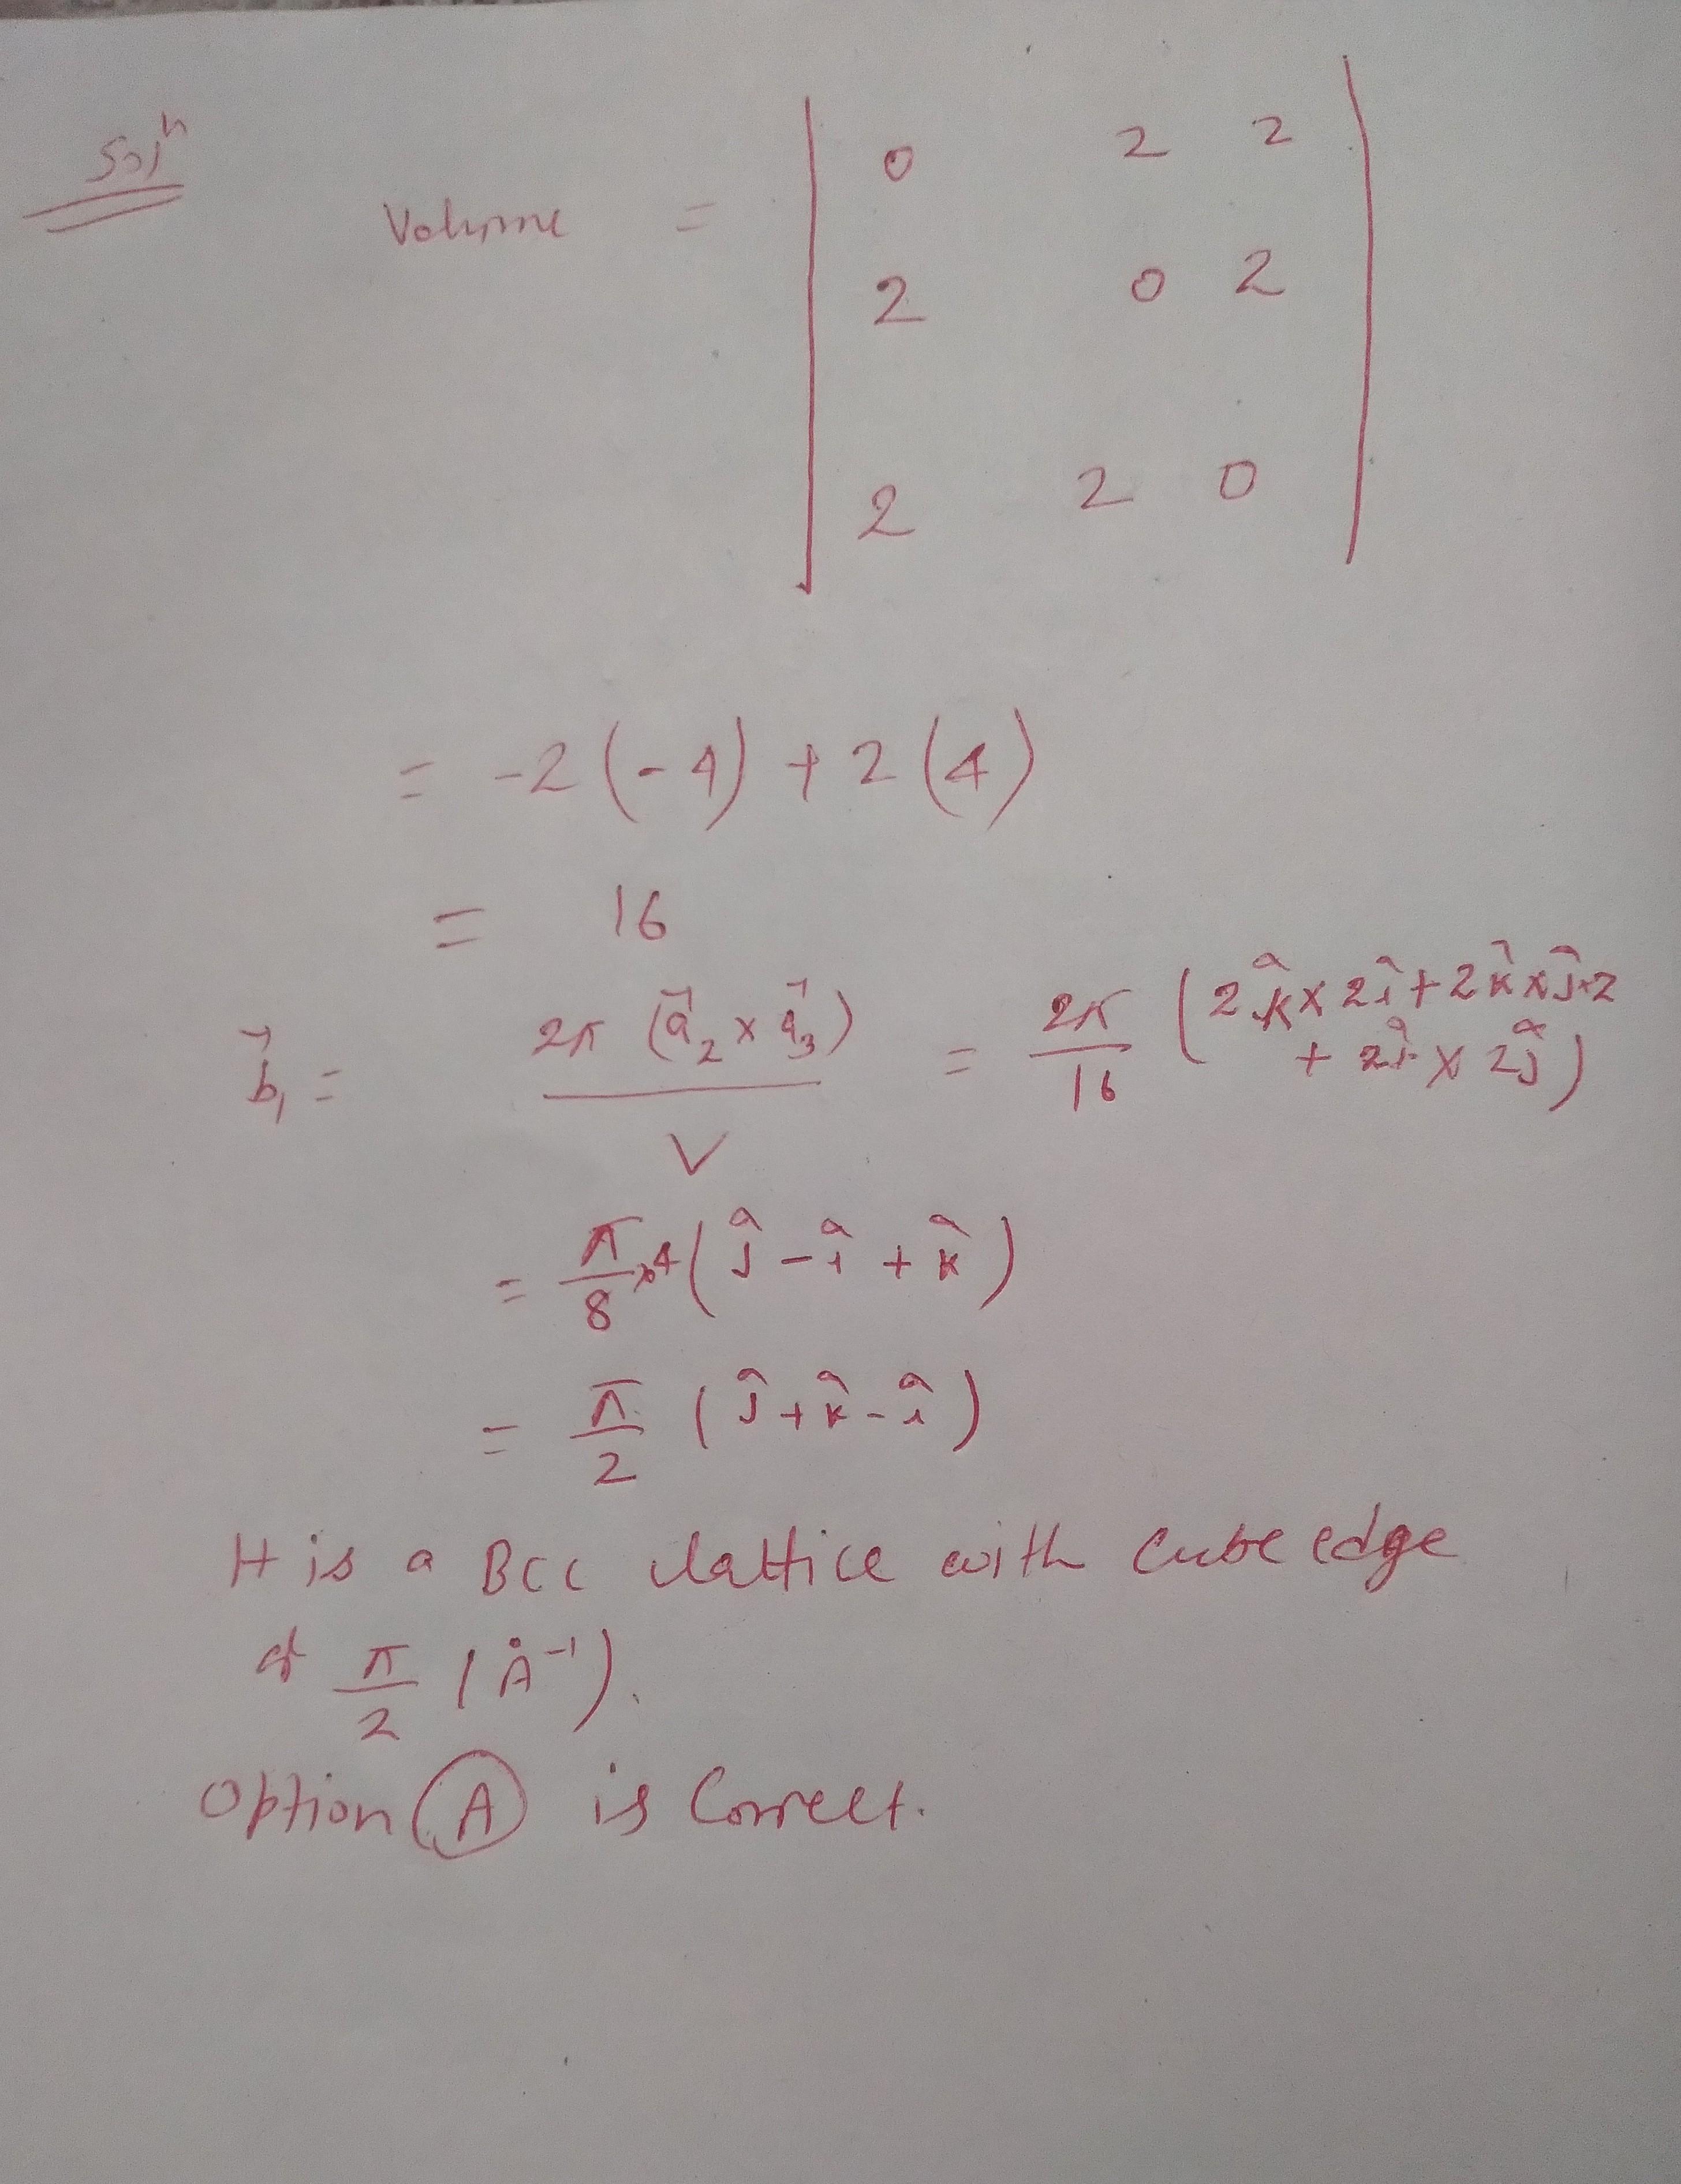 Solⁿ
Volume = | 0 2 2 |
| 2 0 2 |
| 2 2 0 |
= -2 (-4) + 2 (4)
= 16
b⃗₁ = 2π (a⃗₂ × a⃗₃) / V = 2π/16 (2k̂ × 2î + 2k̂ × ĵ×2 + 2î × 2ĵ)
= π/8 ×4 (ĵ - î + k̂)
= π/2 (ĵ + k̂ - î)
It is a Bcc lattice with cube edge
of π/2 (Å⁻¹).
Option (A) is Correct.